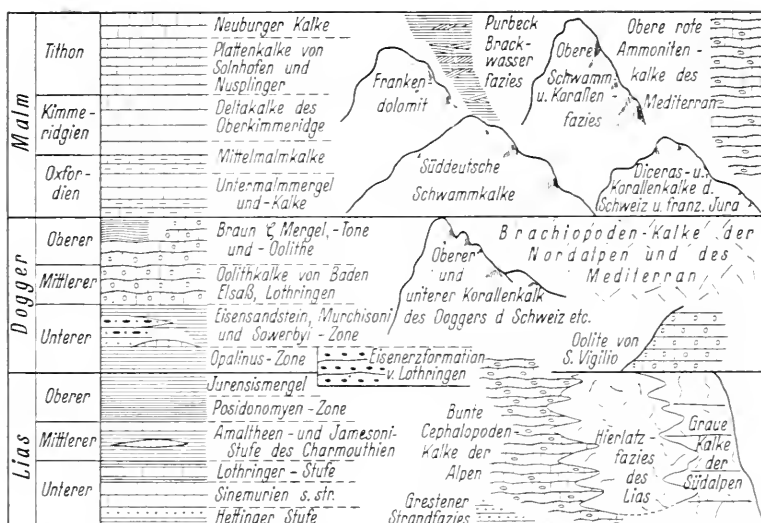 Malm
Tithon
Kimme-
ridgien
Oxfor-
dien
Neuburger Kalke
Plattenkalke von
Solnhofen und
Nusplinger
Deltakalke des
Oberkimmeridge
Mittelmalmkalke
Untermalmmergel
und-Kalke
Franken-
dolomit
Purbeck
Brack-
wasser
fazies
Obere
Schwamm
u. Korallen
fazies
Obere rote
Ammoniten-
kalke des
Mediterran
Süddeutsche
Schwammkalke
Diceras-u.
Korallenkalke d.
Schweiz u. franz. Jura
Dogger
Oberer
Mittlerer
Unterer
Braun ζ Mergel,-Tone
und-Oolithe
Oolithkalke von Baden
Elsaß, Lothringen
Eisensandstein, Murchisoni
und Sowerbyi-Zone
Opalinus-Zone
Oberer
und
unterer Korallenkalk
des Doggers d Schweiz etc.
Brachiopoden-Kalke der
Nordalpen und des
Mediterran
Oolite von
S. Vigilio
Eisenerzformation
v. Lothringen
Lias
Oberer
Mittlerer
Unterer
Jurensismergel
Posidonomyen-Zone
Amaltheen-und Jamesoni-
Stufe des Charmouthien
Lothringer-Stufe
Sinemurien s. str.
Hettinger Stufe
Bunte
Cephalopoden
Kalke der
Alpen
Grestener
Strandfazies
Hierlatz-
fazies
des
Lias
Graue
Kalke
der
Südalpen